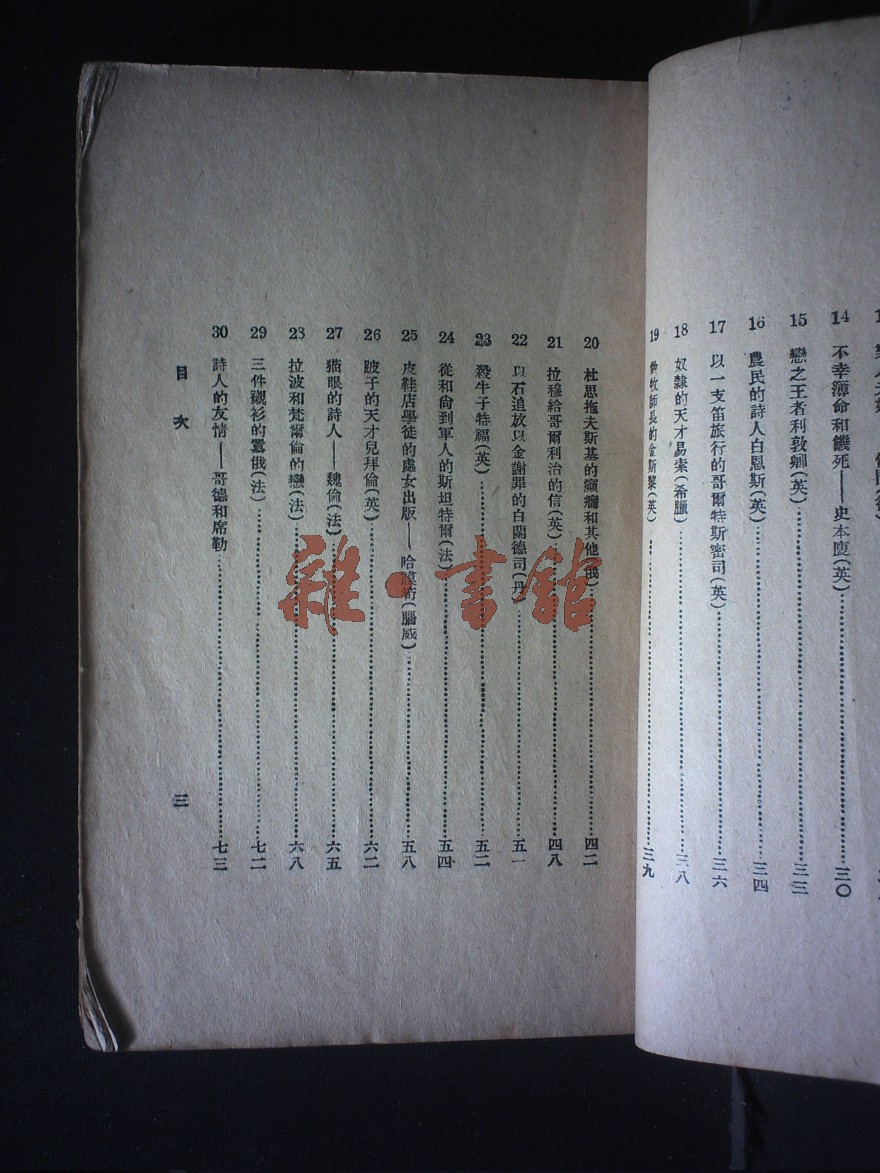 14 不幸薄命和餓死——史本廋(英)……三〇
15 戀之王者利敦爵(英)……三三
16 農民的詩人白恩斯(英)……三四
17 以一支笛旅行的哥爾特斯密司(英)……三六
18 奴隸的天才易索(希臘)……三八
19 牧師長的金斯黎(英)……三九
20 杜思拖夫斯基的癲癇和其他(俄)……四二
21 拉穆給哥爾利治的信(英)……四八
22 以石追放以金謝罪的白蘭德司(丹)……五一
23 殺牛子特福(英)……五二
24 從和尚到軍人的斯坦特爾(法)……五四
25 皮鞋店學徒的處女出版——哈謨荀(腦威)……五八
26 跛子的天才兒拜倫(英)……六二
27 猫眼的詩人——魏倫(法)……六五
28 拉波和梵爾倫的戀(法)……六八
29 三件襯衫的囂俄(法)……七二
30 詩人的友情——哥德和席勒……七三
目次
三
雜·書館